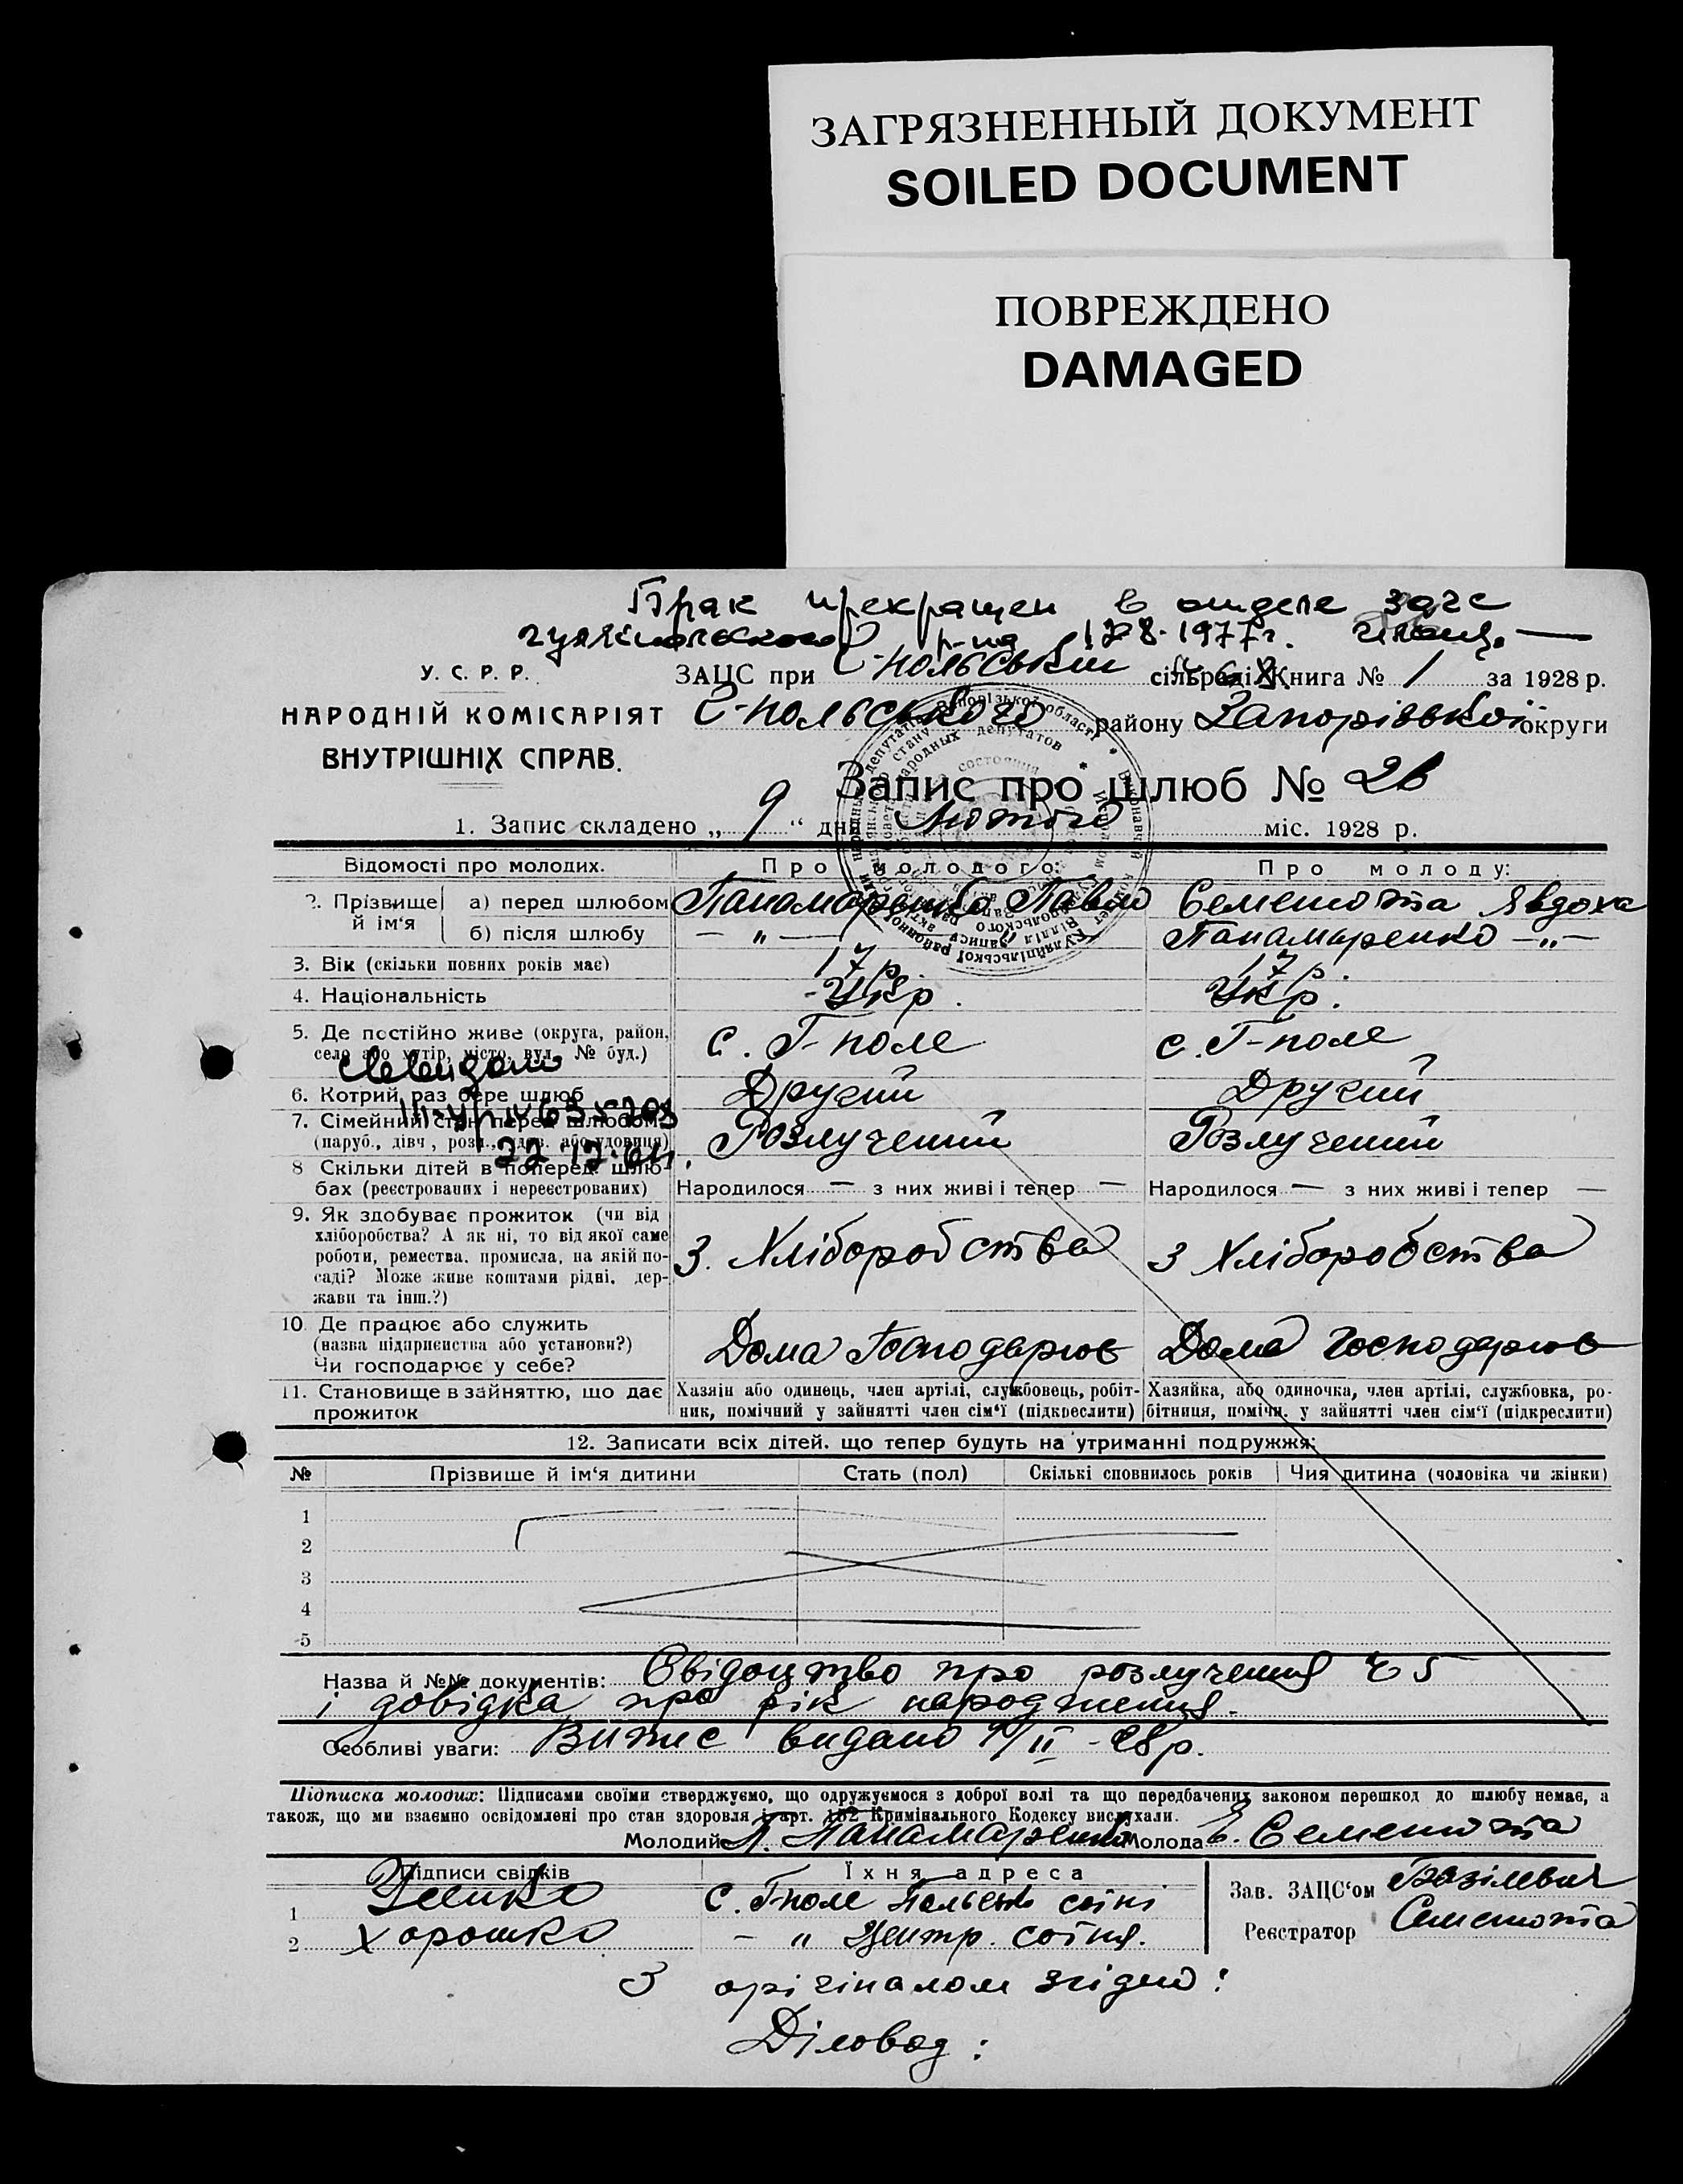 ЗАГРЯЗНЕННЫЙ ДОКУМЕНТ
SOILED DOCUMENT
ПОВРЕЖДЕНО
DAMAGED
Брак прекращен в отделе загс
гуляйпольского р-на 1977г.
У. С. Р. Р.
НАРОДНІЙ КОМІСАРІЯТ
ВНУТРІШНІХ СПРАВ.
ЗАЦС при Г-польській сільраді Книга № 1 за 1928 р.
Г-польського району Запорізької округи
Запис про шлюб № 26
1. Запис складено „ 9 “ дня Лютого міс. 1928 р.
Відомості про молодих. Про молодого: Про молоду:
2. Прізвище й ім‘я
а) перед шлюбом Панамаренко Павло Семенюта Явдоха
б) після шлюбу — „ — Панамаренко — „ —
3. Вік (скільки повних років має) 17 р. 17 р.
4. Національність Укр. Укр.
5. Де постійно живе (округа, район, с. Г-поле с. Г-поле
село або хутір, місто, вул., № буд.)
6. Котрий раз бере шлюб Другий Другий
7. Сімейний стан перед шлюбом
(паруб., дівч., розл., удов. або удовиця) Розлучений Розлучений
22 12.64
8 Скільки дітей в поперед. шлю-
бах (реєстрованих і нереєстрованих) Народилося — з них живі і тепер — Народилося — з них живі і тепер —
9. Як здобуває прожиток (чи від
хліборобства? А як ні, то від якої саме
роботи, ремества, промисла, на якій по-
саді? Може живе коштами рідні, дер-
жави та інш.?)
З. Хліборобства З Хліборобства
10. Де працює або служить
(назва підприємства або установи?)
Чи господарює у себе?
Дома Господарює Дома господарює
11. Становище в зайняттю, що дає
прожиток
Хазяїн або одинець, член артілі, службовець, робіт-
ник, помічний у зайнятті член сім‘ї (підкреслити)
Хазяйка, або одиночка, член артілі, службовка, ро-
бітниця, помічн. у зайнятті член сім‘ї (підкреслити)
12. Записати всіх дітей, що тепер будуть на утриманні подружжя:
№ Прізвише й ім‘я дитини Стать (пол) Скількі сповнилось років Чия дитина (чоловіка чи жінки)
1
2
3
4
5
Назва й №№ документів: Свідоцтво про розлучення Ч 5
і довідка про рік народження.
Особливі уваги: Витис видано 9/II - 28 р.
Підписка молодих: Підписами своїми стверджуємо, що одружуємося з доброї волі та що передбачених законом перешкод до шлюбу немає, а
також, що ми взаємно освідомлені про стан здоровля і арт. 152 Кримінального Кодексу вислухали.
Молодий П. Панамаренко Молода Є. Семенюта
Підписи свідків Їхня адреса
1 с. Г-поле
2 Хорошко — „ Центр. сотня.
Зав. ЗАЦС‘ом Базілевич
Реєстратор Семенюта
З орігіналом згідно:
Діловод: